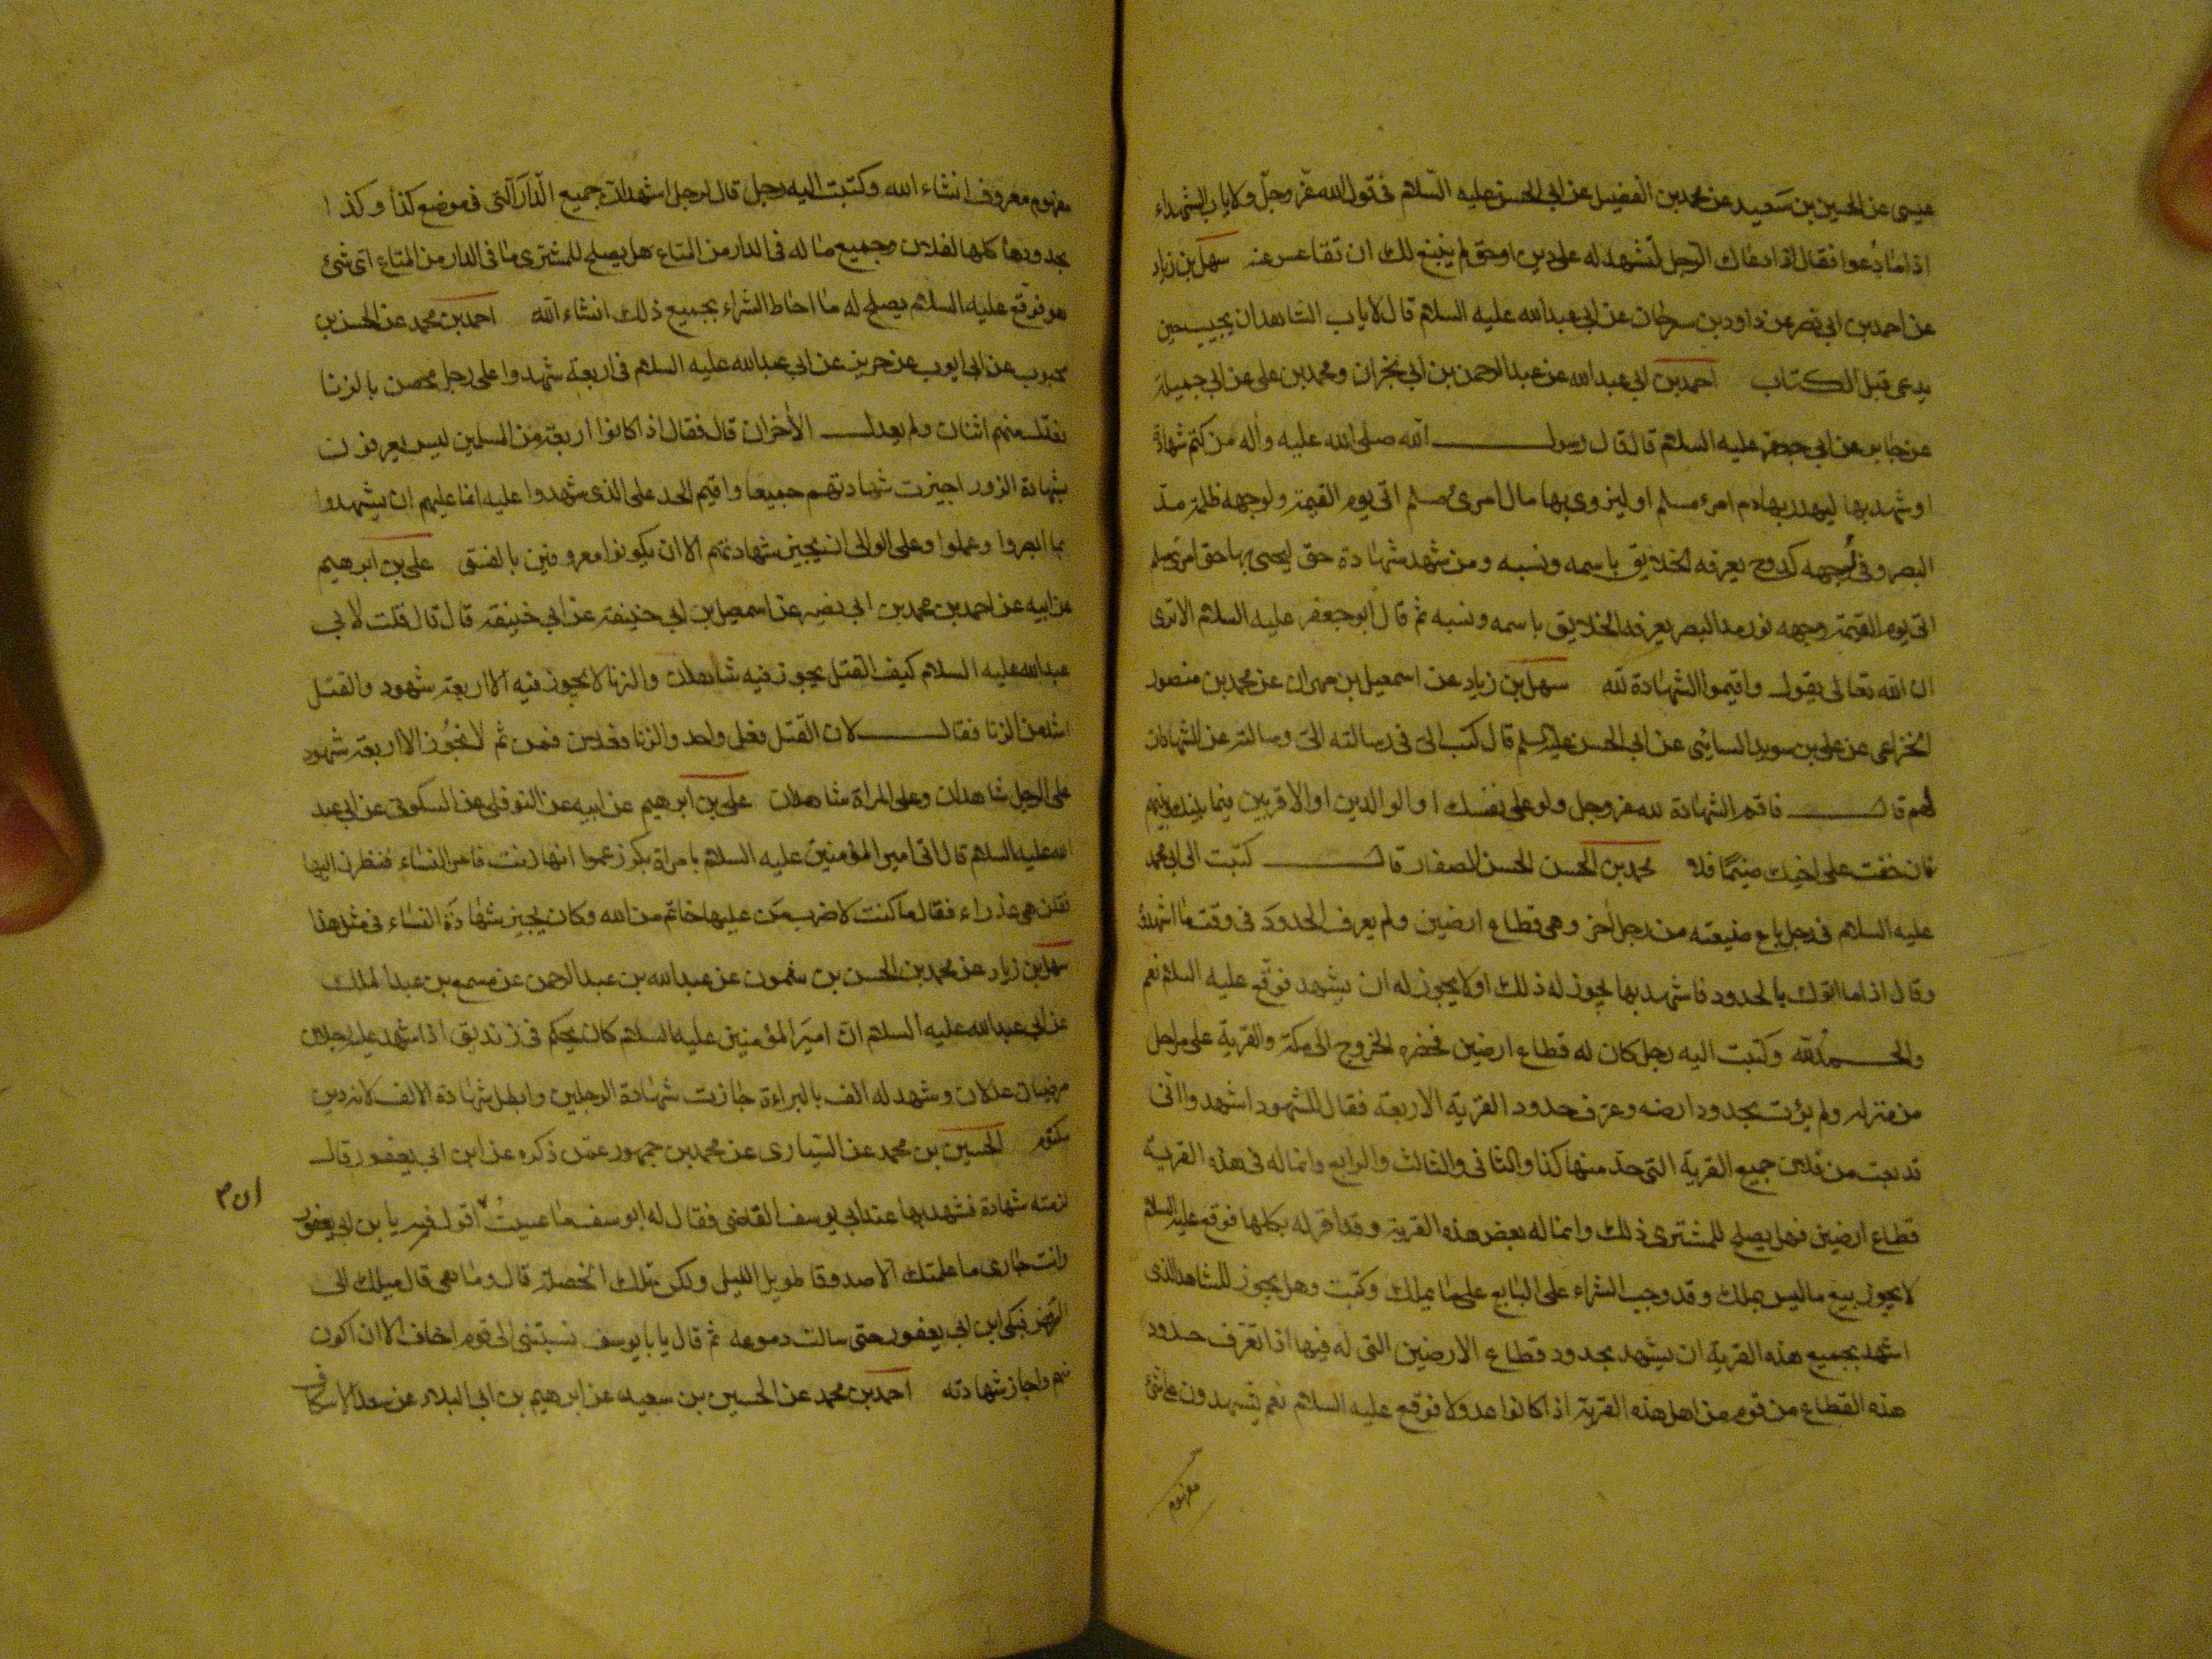 عيسى عن الحسين بن سعيد عن محمد بن الفضيل عن ابى الحسن عليه السلام فى قول الله عز وجل ولا ياب الشهداء
اذا ما دعوا فقال اذا دعاك الرجل لتشهد له على دين او حق لم ينبغ لك ان تقاعس عنه سهل بن زياد
عن احمد بن ابى نصر عن داود بن سرحان عن ابى عبد الله عليه السلام قال لا ياب الشاهد ان يجيب حين
يدعى قبل الكتاب احمد بن ابى عبد الله عن عبد الرحمن بن ابى نجران ومحمد بن على عن ابى جميلة
عن جابر عن ابى جعفر عليه السلام قال قال رسول الله صلى الله عليه واله من كتم شهادة
او شهد بها ليهدر بها دم امرء مسلم او ليزوى بها مال امرئ مسلم اتى يوم القيمة ولوجهه ظلمة مد
البصر وفى وجهه كدوح يعرفه الخلايق باسمه ونسبه ومن شهد شهادة حق ليحيى بها حق امرئ مسلم
اتى يوم القيمة ووجهه نور مد البصر يعرفه الخلايق باسمه ونسبه ثم قال ابو جعفر عليه السلام الا ترى
ان الله تعالى يقول واقيموا الشهادة لله سهل بن زياد عن اسمعيل بن مهران عن محمد بن منصور
الخزاعى عن على بن سويد السائى عن ابى الحسن عليه السلم قال كتب الى فى رسالته الى وسالته عن الشهادات
لهم قال فاقم الشهادة لله عز وجل ولو على نفسك او الوالدين او الاقربين فيما بينك وبينهم
فان خفت على اخيك ضيما فلا محمد بن الحسن الحسن الصفار قال كتبت الى ابى محمد
عليه السلام فى رجل باع ضيعته من رجل اخر وهى قطاع ارضين ولم يعرف الحدود فى وقت ما اشهده
وقال اذا ما اتوك بالحدود فاشهد بها يجوز له ذلك او لا يجوز له ان يشهد فوقع عليه السلام نعم
والحمد لله وكتبت اليه رجل كان له قطاع ارضين فحضره الخروج الى مكة والقرية على مراحل
من منزله ولم يؤت بحدود ارضه وعرف حدود القرية الاربعة فقال للشهود اشهدوا انى
قد بعت من فلان جميع القرية التى حد منها كذا والثانى والثالث والرابع وانما له فى هذه القرية
قطاع ارضين فهل يصلح للمشترى ذلك وانما له بعض هذه القرية وقد اقر له بكلها فوقع عليه السلام
لا يجوز بيع ما ليس يملك وقد وجب الشراء على البايع على ما يملك وكتبت وهل يجوز للشاهد الذى
اشهد بجميع هذه القرية ان يشهد بحدود قطاع الارضين التى له فيها اذا تعرف حدود
هذه القطاع من قوم من اهل هذه القرية اذا كانوا عدولا فوقع عليه السلام نعم يشهدون على شئ
مفهوم
مفهوم معروف انشاء الله وكتبت اليه رجل قال لرجل اشهد ان جميع الدار التى فى موضع كذا وكذا
بحدودها كلها لفلان وجميع ما له فى الدار من المتاع هل يصلح للمشترى ما فى الدار من المتاع اى شئ
هو فوقع عليه السلام يصلح له ما احاط الشراء بجميع ذلك انشاء الله احمد بن محمد عن الحسن بن
محبوب عن ابى ايوب عن حريز عن ابى عبد الله عليه السلام فى اربعة شهدوا على رجل محصن بالزنا
فعدل منهم اثنان ولم يعدل الأخران قال فقال اذا كانوا اربعة من المسلمين ليس يعرفون
بشهادة الزور اجيزت شهادتهم جميعا واقيم الحد على الذى شهدوا عليه انما عليهم ان يشهدوا
بما ابصروا وعملوا وعلى الوالى ان يجيز شهادتهم الا ان يكونوا معروفين بالفسق على بن ابرهيم
عن ابيه عن احمد بن محمد بن ابى نصر عن اسمعيل بن ابى حنيفة عن ابى حنيفة قال قال قلت لابى
عبد الله عليه السلام كيف القتل يجوز فيه شاهدان والزنا لا يجوز فيه الا اربعة شهود والقتل
اشد من الزنا فقال لان القتل فعل واحد والزنا فعلان فمن ثم لا يجوز الا اربعة شهود
على الرجل شاهدان وعلى المراة شاهدان على بن ابرهيم عن ابيه عن النوفلى عن السكونى عن ابى عبد
الله عليه السلام قال اتى امير المؤمنين عليه السلام بامراة بكر زعموا انها زنت فامر النساء فنظرن اليها
فقلن هى عذراء فقال ما كنت لاضرب من عليها خاتم من الله وكان يجيز شهادة النساء فى مثل هذا
سهل بن زياد عن محمد بن الحسن بن شمون عن عبد الله بن عبد الرحمن عن مسمع بن عبد الملك
عن ابى عبد الله عليه السلام ان امير المؤمنين عليه السلام كان يحكم فى زنديق اذا شهد عليه رجلان
مرضيان عدلان وشهد له الف بالبراءة جازت شهادة الرجلين وابطل شهادة الالف لانه دين
مكتوم الحسين بن محمد عن السيارى عن محمد بن جمهور عمن ذكره عن ابن ابى يعفور قال
لزمته شهادة فشهد بها عند ابى يوسف القاضى فقال له ابو يوسف ما عسيت اقول فيك يا بن ابى يعفور
ان م
وانت جارى ما علمتك الا صدوقا طويل الليل ولكن تلك الخصلة قال وما هى قال ميلك الى
الترفض فبكى ابن ابى يعفور حتى سالت دموعه ثم قال يا با يوسف نسبتنى الى قوم اخاف الا ان اكون
منهم واجاز شهادته احمد بن محمد عن الحسين بن سعيد عن ابرهيم بن ابى البلاد عن سعد الاسكاف